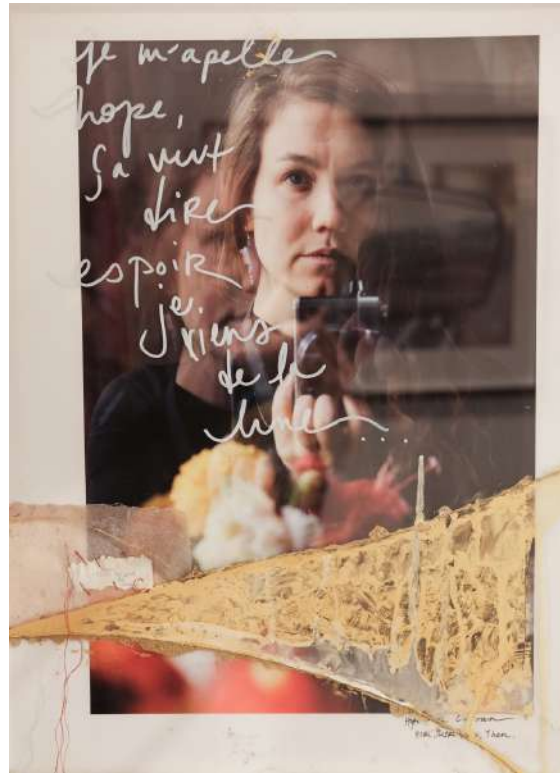 je m'apelle
hope,
ça veut
dire
espoir
je
viens
de la
lune...